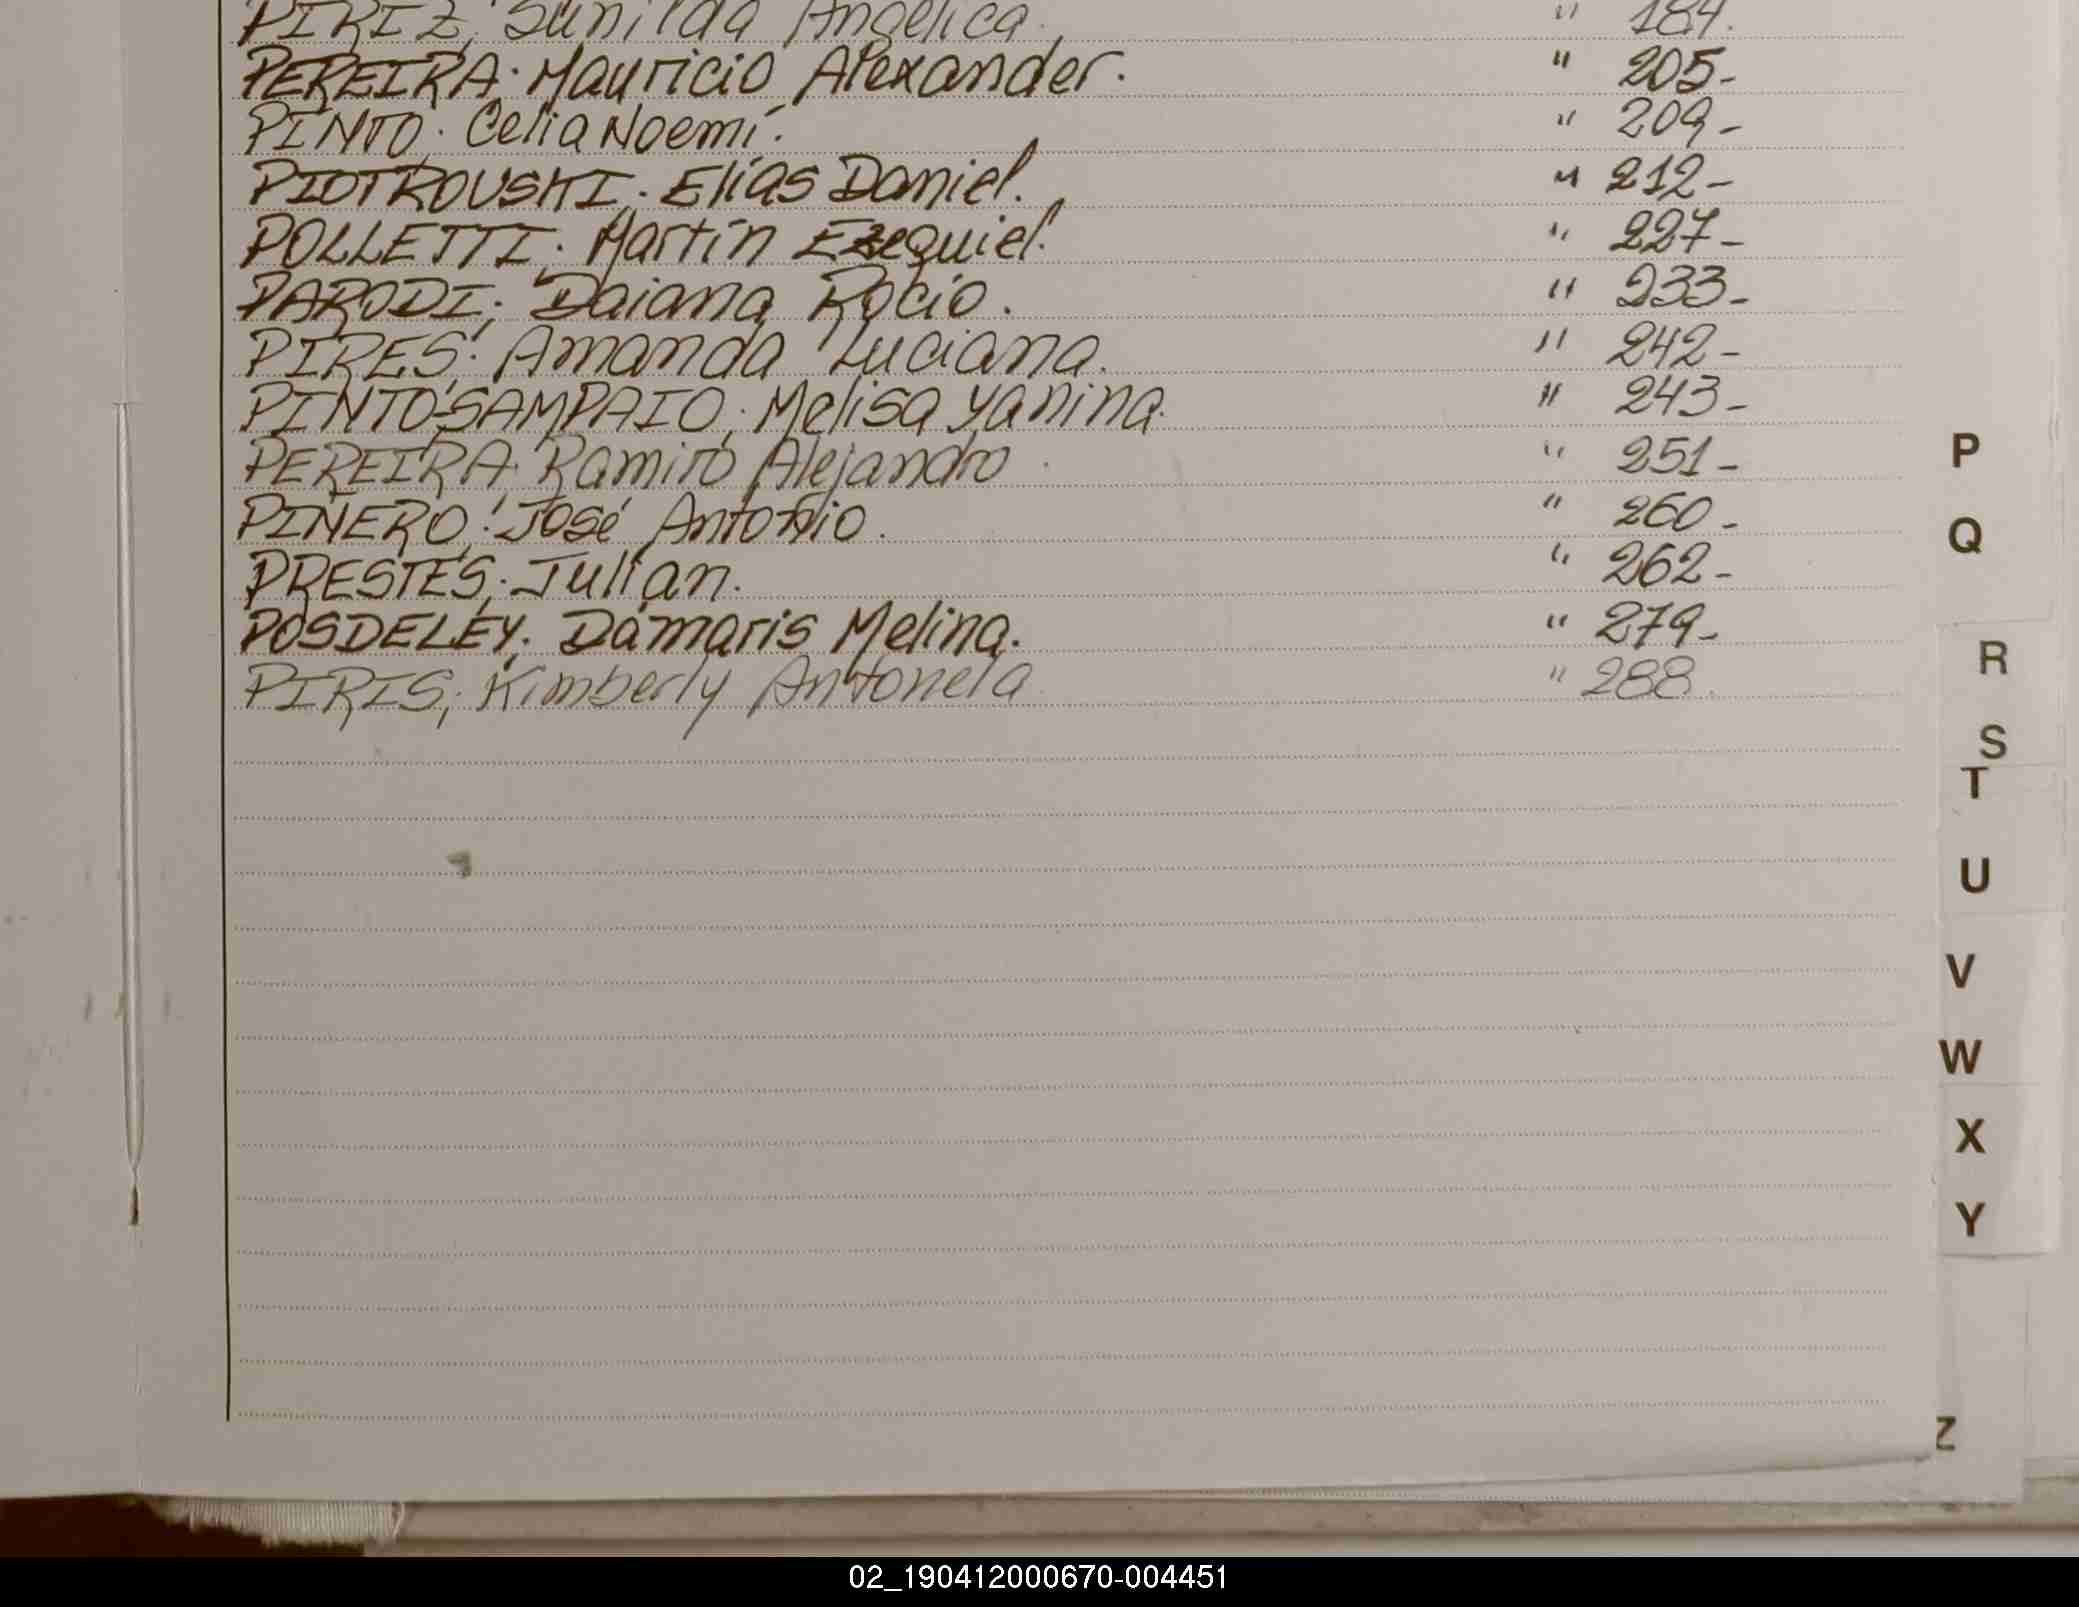 PIRIZ, Sunilda Angélica. " 184.
PEREIRA. Mauricio Alexander. " 205-
PINTO. Celia Noemí. " 209-
PIOTROVSKI. Elías Daniel. " 212-
POLLETTI. Martín Ezequiel. " 227-
PARODI; Daiana Rocío. " 233-
PIRES. Amanda Luciana. " 242-
PINTO SAMPAIO. Melisa Yanina. " 243-
PEREIRA Ramiro Alejandro. " 251-
PINERO. José Antonio. " 260-
PRESTES. Julian. " 262-
POSDELEY. Dámaris Melina. " 279-
PIRIS; Kimberly Antonela " 288.
P
Q
R
S
T
U
V
W
X
Y
Z
02_190412000670-004451